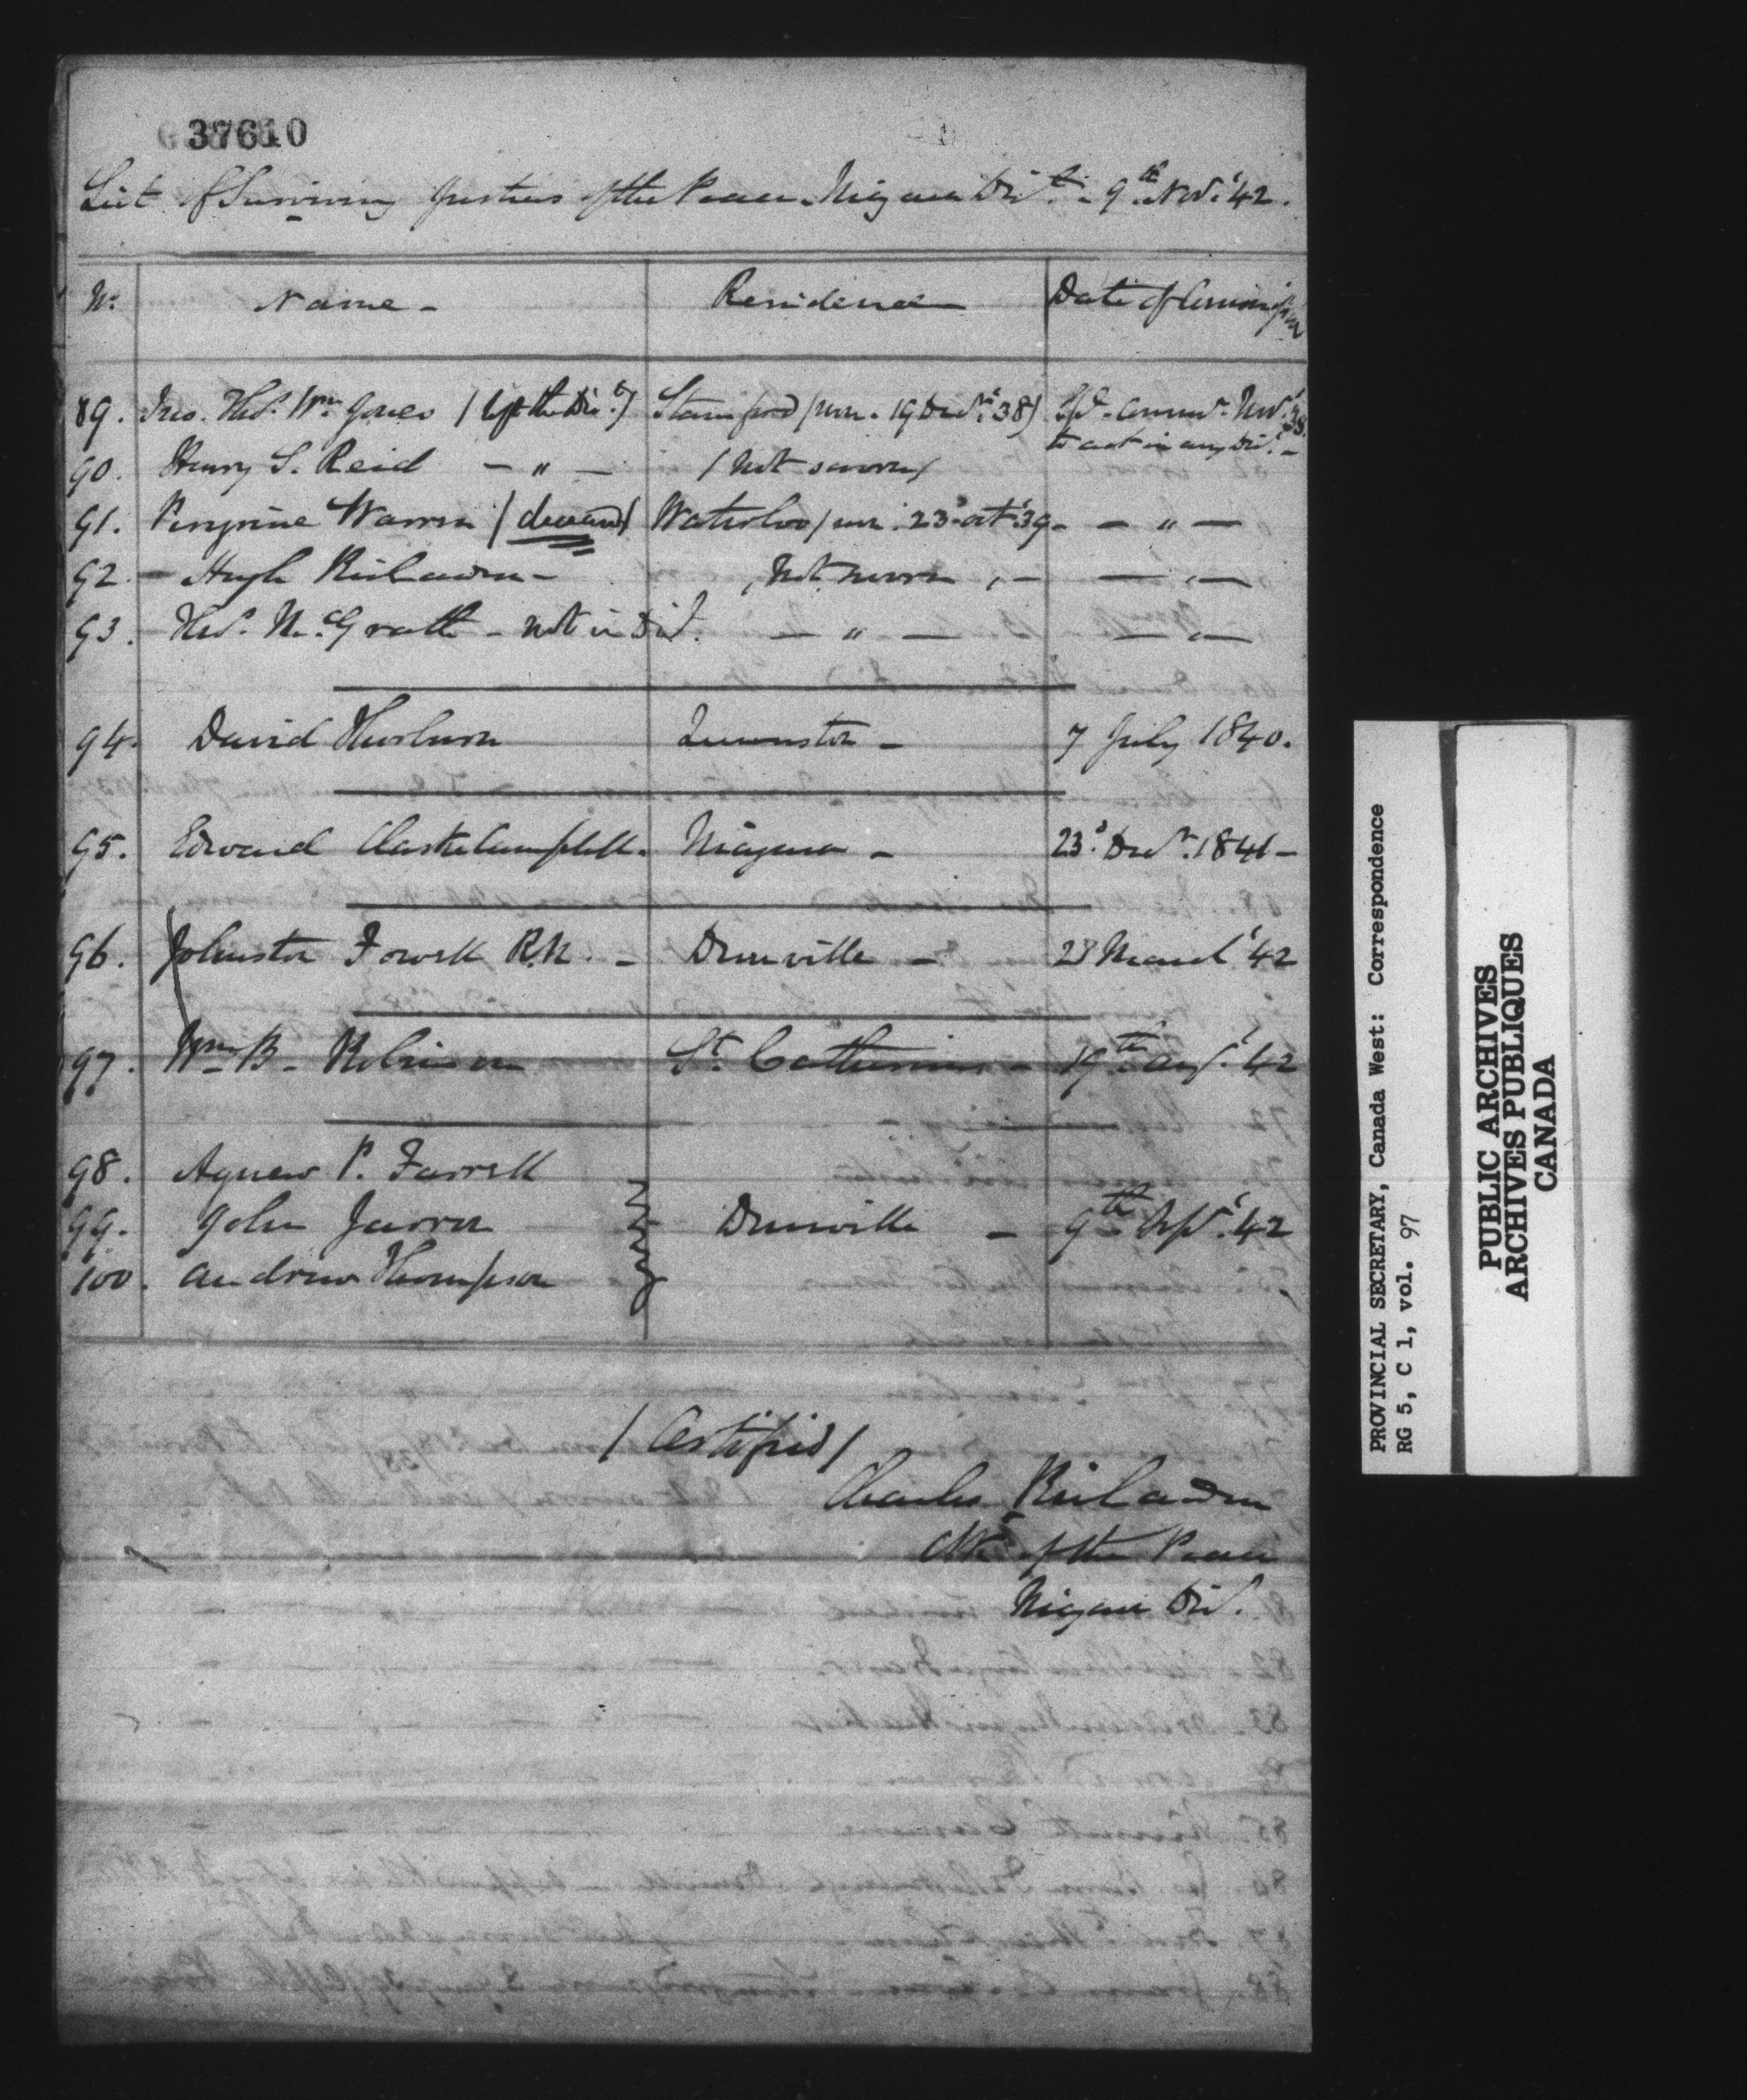 37610
List of Surviving Justices of the Peace Niagara Dist. - 9th Nov. '42.
No. Name - Residence Date of Commission
89. Jno. Thos. Wm. Jones / left the Dist. / Stamford / sworn 19 Decr. '38 / Spl. Commn. Novr. '38.
to act in any Dist. -
90. Henry S. Reid - " - / Not sworn /
91. Peregrine Warren / deceased / Waterloo / sworn 23d Oct. '39 - - " -
92 - Hugh Richardson - / Not sworn / - - " -
93. Thos. McGrath - not in Dist. - " - - " -
94. David Thorburn Queenston - 7 July 1840.
95. Edward Clarke Campbell. Niagara - 23d Decr. 1841 -
96. Johnston Fowell R.N. - Dunnville - 28 March '42
97. Wm. B. Robinson St. Catherines - 19th Aug. '42
98. Agnew P. Farrell
99. John Jarron Dunnville - 9th Sepr. '42
100. Andrew Thompson
/ Certified /
Charles Richardson
Clk. of the Peace
Niagara Dist.
PROVINCIAL SECRETARY, Canada West: Correspondence
RG 5, C 1, vol. 97
PUBLIC ARCHIVES
ARCHIVES PUBLIQUES
CANADA